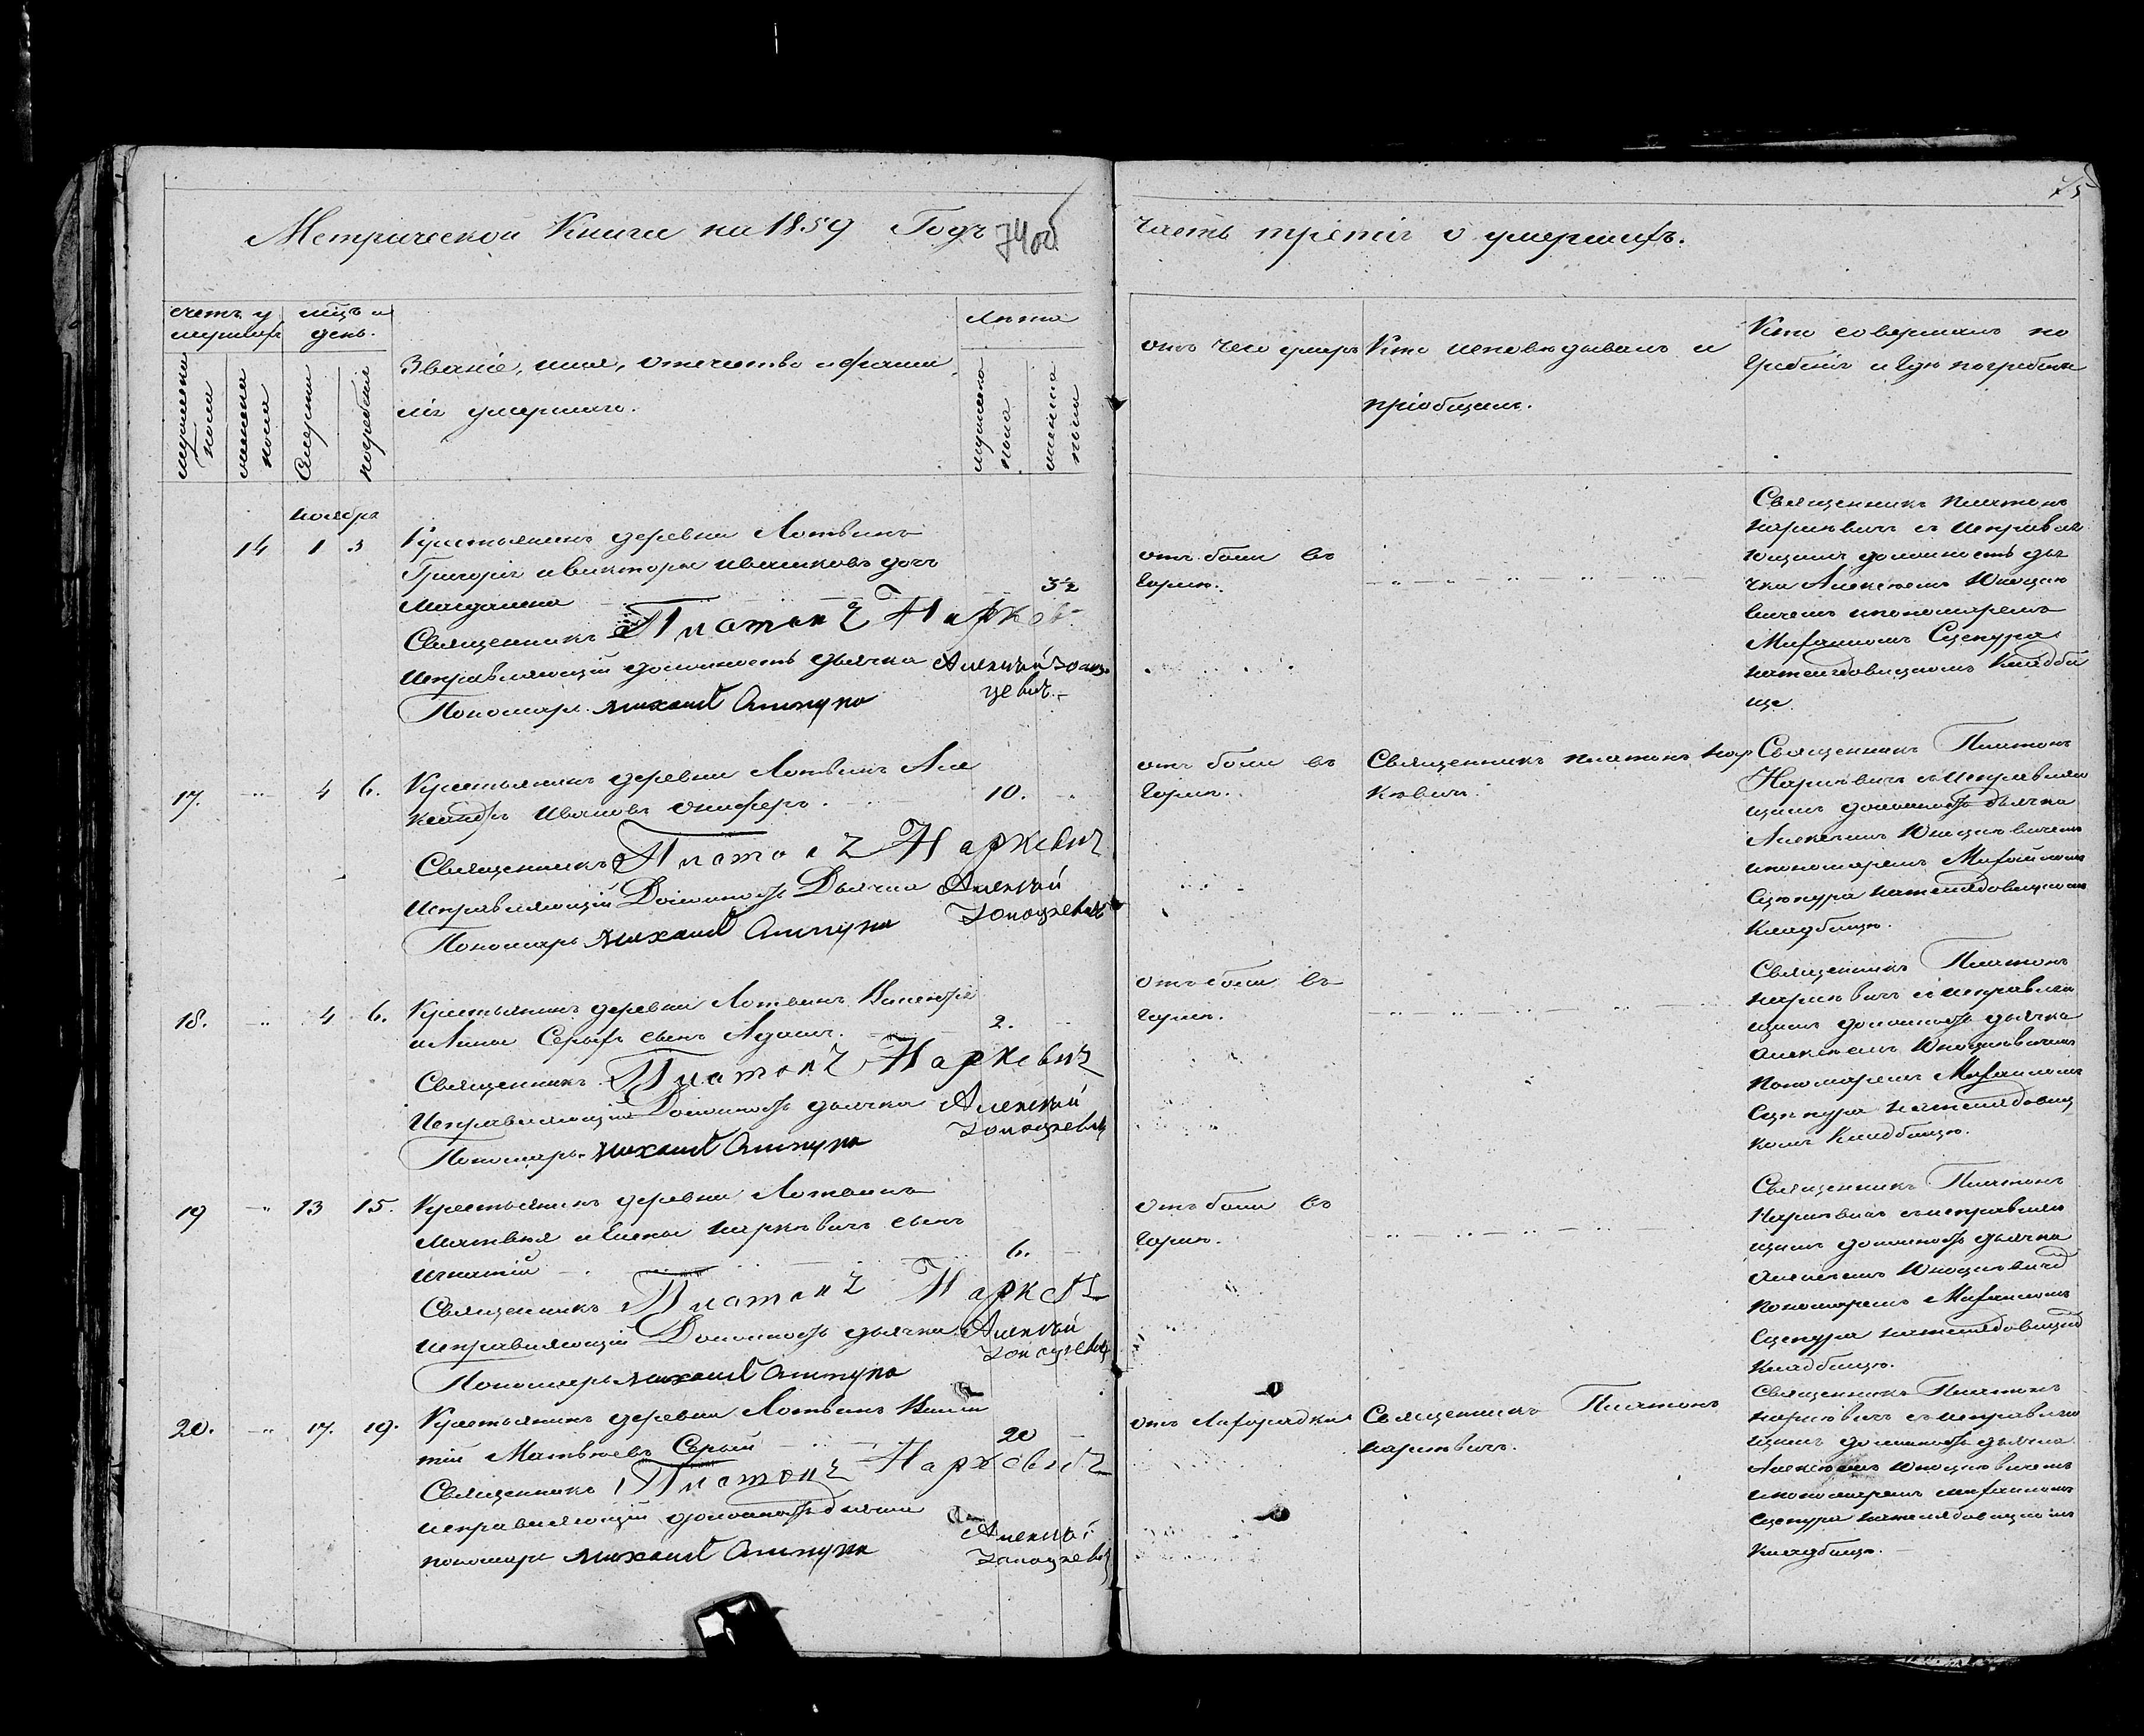 Метрической Книги на 1859 Годъ
74об
часть третія о умершихъ.
75
счетъ у
мершихъ
мцъ и
день.
мужеска
пола
женска
пола
Смерти
погребенія
Званіе, имя, отечество и фами
лія умершаго.
лѣта
мужеска
пола
женска
пола
отъ чего умеръ
Кто исповѣдывалъ и
пріобщалъ.
Кто совершалъ по
гребеніе и гдѣ погребены
ноября
14 1 3
Крестьянинъ деревни Лотвинъ
Григорія и Викторіи Ивашковъ дочь
Магдалина
3½
Священникъ Платонъ Нарков
Исправляющій должность дьячка Алексѣй
Пономарь Михаилъ
отъ боли въ
горлѣ.
Священникъ Платонъ
Наркѣвичъ съ исправля
ющимъ должность дья
чка Алексѣемъ
вичемъ и пономаремъ
Михаиломъ Сцепура
Кладби
ще.
17. 4 6.
Крестьянинъ деревни Лотвинъ Але
ксандръ Ивановъ
10.
Священникъ Платонъ Наркевичъ
Исправляющій Должность Дьячка Алексѣй
Пономарь Михаилъ
отъ боли въ
горлѣ.
Священникъ Платонъ Нар
кѣвичъ.
Священникъ Платонъ
Наркѣвичъ съ исправляю
щимъ должность дьячка
Алексѣемъ
и пономаремъ Михаиломъ
Сцепура
Кладбищѣ.
18. 4 6.
Крестьянинъ деревни Лотвинъ
и Анны Серыхъ сынъ Адамъ.
2.
Священникъ Платонъ Наркевичъ
Исправляющій Должность дьячка Алексѣй
Пономарь Михаилъ
отъ боли въ
горлѣ.
Священникъ Платонъ
Наркѣвичъ съ исправляю
щимъ должность дьячка
Алексѣемъ
Пономаремъ Михаиломъ
Сцепура
комъ Кладбищѣ.
19 13 15.
Крестьянинъ деревни Лотвинъ
Матвѣя и Елены Наркѣвичъ сынъ
Игнатій
6.
Священникъ Платонъ Нарк
исправляющій Должность дьячка Алексѣй
Пономарь Михаилъ
отъ боли въ
горлѣ.
Священникъ Платонъ
Наркѣвичъ съ исправляю
щимъ должность дьячка
Алексѣемъ
пономаремъ Михаиломъ
Сцепура
Кладбищѣ.
20. 17. 19.
Крестьянинъ деревни Лотвинъ
Матвѣевъ Сѣрый
20
Священникъ Платонъ Наркевичъ
исправляющій должность дьячка
Алексѣй
пономарь Михаилъ
отъ Лихорадки
Священникъ Платонъ
Наркѣвичъ.
Священникъ Платонъ
Наркѣвичъ съ исправляю
щимъ должность дьячка
Алексѣемъ
и пономаремъ Михаиломъ
Сцепура
Кладбищѣ.